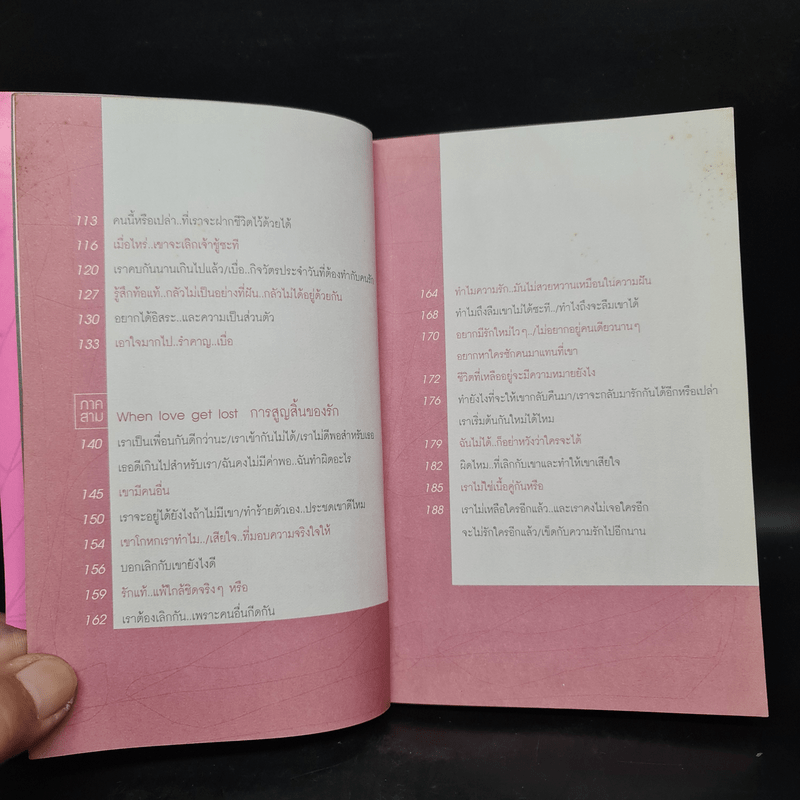 113 คนนี้หรือเปล่า..ที่เราจะฝากชีวิตไว้ด้วยได้
116 เมื่อไหร่..เขาจะเลิกเจ้าชู้ซะที
120 เราคบกันนานเกินไปแล้ว/เบื่อ..กิจวัตรประจำวันที่ต้องทำกับคนรัก
127 รู้สึกท้อแท้..กลัวไม่เป็นอย่างที่ฝัน..กลัวไม่ได้อยู่ด้วยกัน
130 อยากได้อิสระ..และความเป็นส่วนตัว
133 เอาใจมากไป..รำคาญ..เบื่อ
ภาค
สาม
When love get lost การสูญสิ้นของรัก
140 เราเป็นเพื่อนกันดีกว่านะ/เราเข้ากันไม่ได้/เราไม่ดีพอสำหรับเธอ
เธอดีเกินไปสำหรับเรา/ฉันคงไม่มีค่าพอ..ฉันทำผิดอะไร
145 เขามีคนอื่น
150 เราจะอยู่ได้ยังไงถ้าไม่มีเขา/ทำร้ายตัวเอง..ประชดเขาดีไหม
154 เขาโกหกเราทำไม../เสียใจ..ที่มอบความจริงใจให้
156 บอกเลิกกับเขายังไงดี
159 รักแท้..แพ้ใกล้ชิดจริงๆ หรือ
162 เราต้องเลิกกัน..เพราะคนอื่นกีดกัน
164 ทำไมความรัก..มันไม่สวยหวานเหมือนในความฝัน
168 ทำไมถึงลืมเขาไม่ได้ซะที../ทำไงถึงจะลืมเขาได้
170 อยากมีรักใหม่ไวๆ../ไม่อยากอยู่คนเดียวนานๆ
อยากหาใครซักคนมาแทนที่เขา
172 ชีวิตที่เหลืออยู่จะมีความหมายยังไง
176 ทำยังไงที่จะให้เขากลับคืนมา/เราจะกลับมารักกันได้อีกหรือเปล่า
เราเริ่มต้นกันใหม่ได้ไหม
179 ฉันไม่ได้..ก็อย่าหวังว่าใครจะได้
182 ผิดไหม..ที่เลิกกับเขาและทำให้เขาเสียใจ
185 เราไม่ใช่เนื้อคู่กันหรือ
188 เราไม่เหลือใครอีกแล้ว..และเราคงไม่เจอใครอีก
จะไม่รักใครอีกแล้ว/เข็ดกับความรักไปอีกนาน